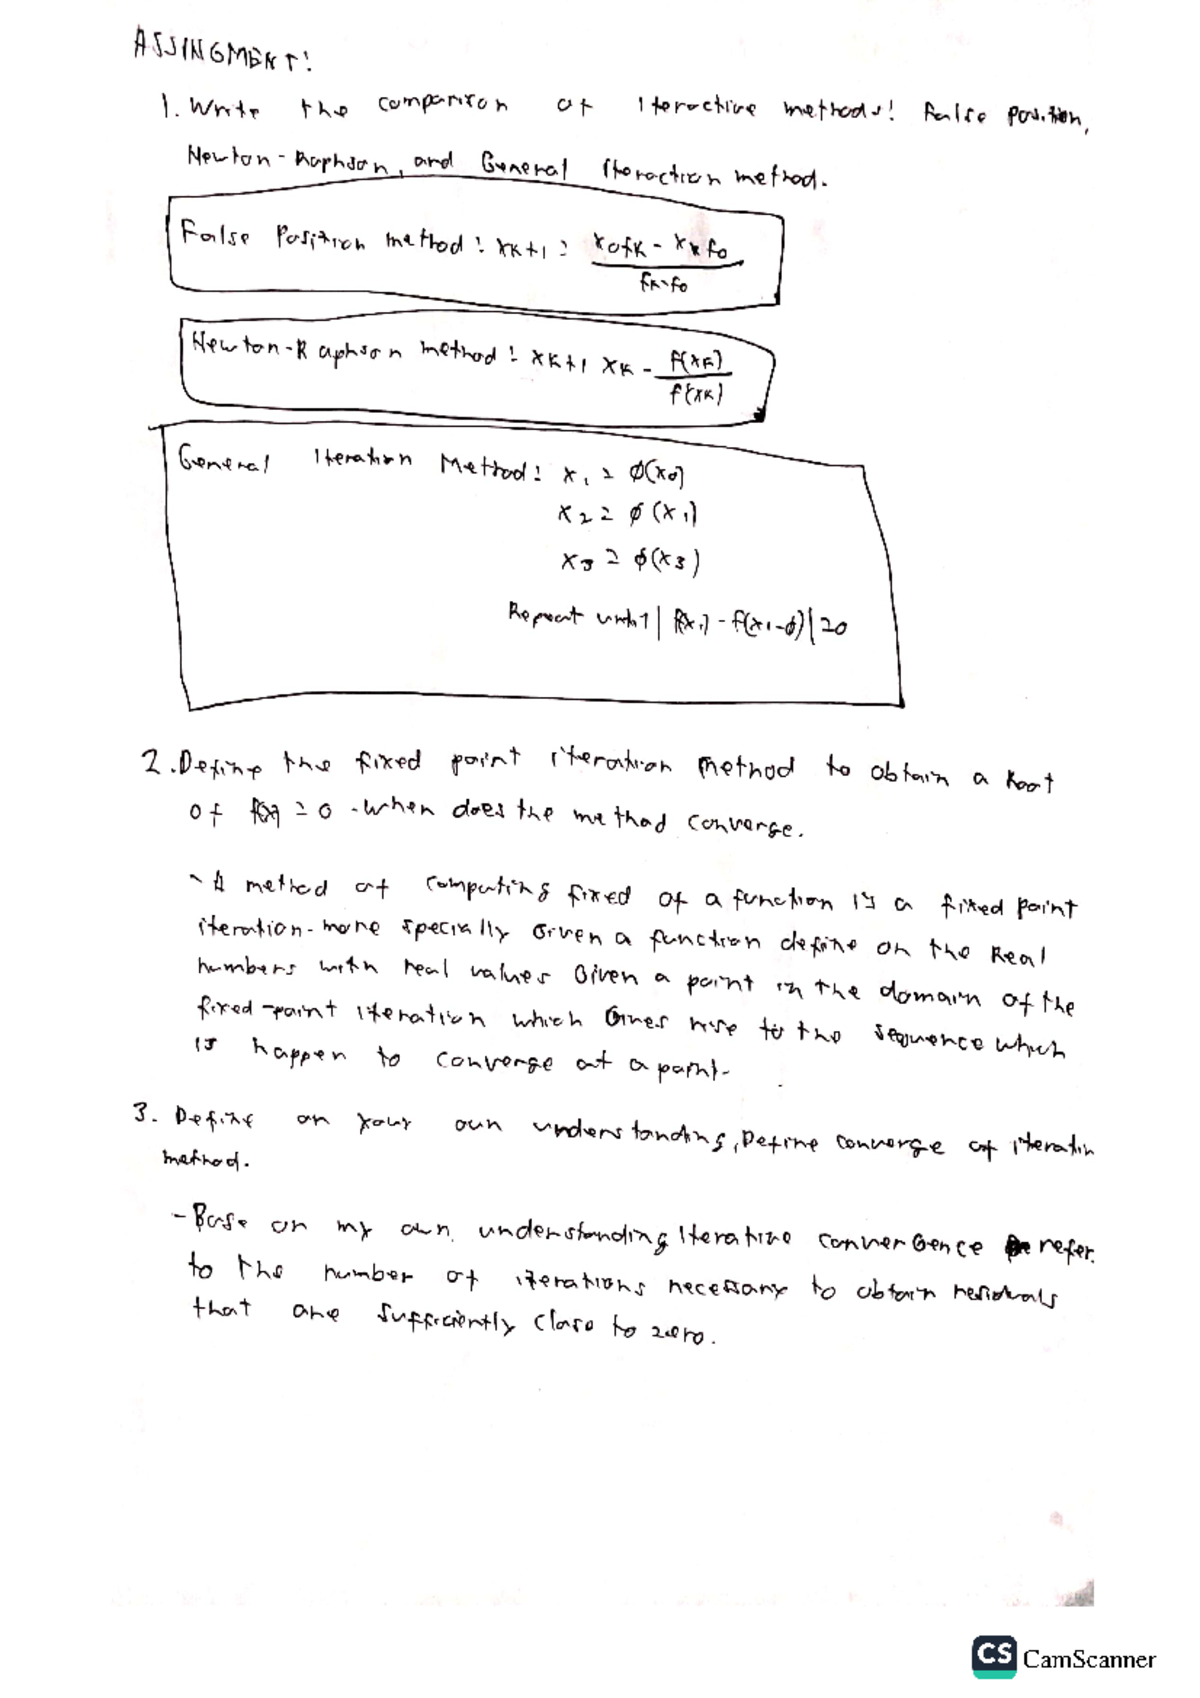 ASSINGMENT:
1. Write the comparison of iteractive methods: False Position,
Newton-Raphson, and General Iteraction method.
False Position method: xk+1 = x0fk - xkf0 / fk-f0
Newton-Raphson method: xk+1 xk - f(xk) / f'(xk)
General Iteration Method: x1 = φ(x0)
x2 = φ(x1)
x3 = φ(x3)
Repeat until | f(x1) - f(x1-φ)| = 0
2. Define the fixed point iteration method to obtain a root
of f(x) = 0 - when does the method converge.
- A method of computing fixed of a function is a fixed point
iteration - more specially Given a function define on the Real
numbers with real values Given a point in the domain of the
fixed-point iteration which Gives rise to the sequence which
is happen to converge at a point-
3. Define on your own understanding, Define converge of iteratin
method.
- Base on my own understanding Iterative converGence refer
to the number of iterations necessary to obtain residuals
that are sufficiently close to zero.
CS CamScanner